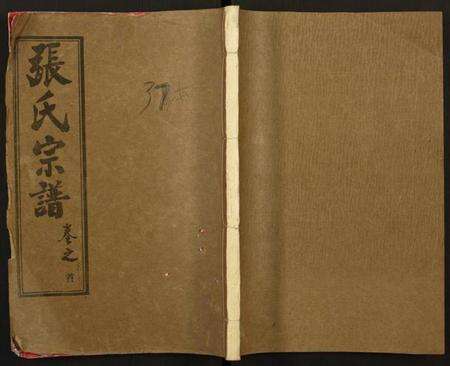 張氏宗譜
卷之首
37本